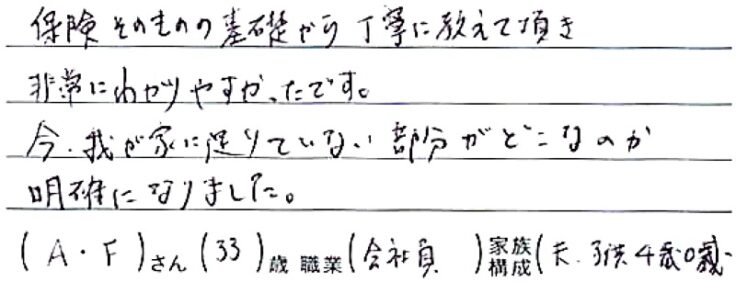 保険そのものの基礎から丁寧に教えて頂き
非常にわかりやすかったです。
今、我が家に足りていない部分がどこなのか
明確になりました。
(A・F)さん(33)歳 職業(会社員 )家族構成(夫、子供4歳0歳